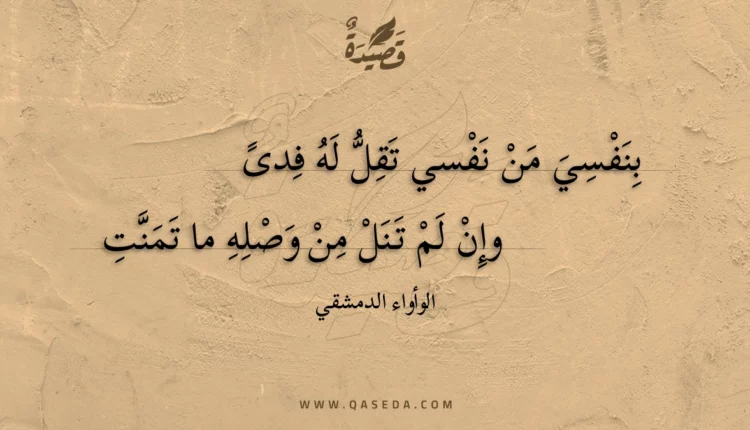 قَصِيدَةٌ
بِنَفْسِيَ مَنْ نَفْسي تَقِلُّ لَهُ فِدىً
وإِنْ لَمْ تَنَلْ مِنْ وَصْلِهِ ما تَمَنَّتِ
الوأواء الدمشقي
WWW.QASEDA.COM